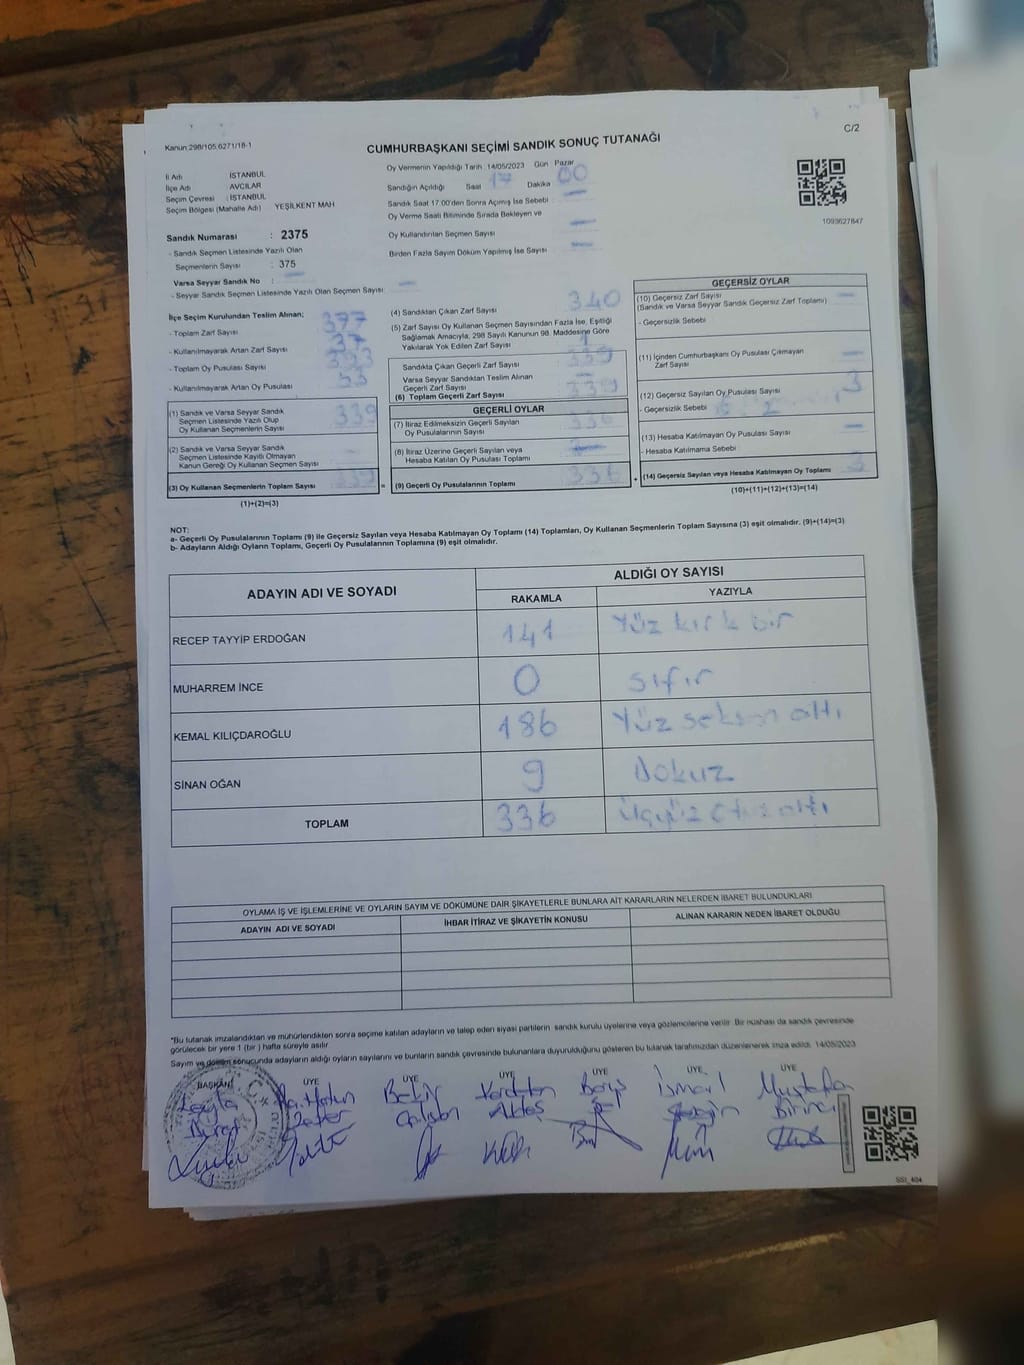 C/2
Kanun:298/105,6271/18-1
CUMHURBAŞKANI SEÇİMİ SANDIK SONUÇ TUTANAĞI
İl Adı : İSTANBUL
İlçe Adı : AVCILAR
Seçim Çevresi : İSTANBUL
Seçim Bölgesi (Mahalle Adı) YEŞİLKENT MAH
Sandık Numarası : 2375
- Sandık Seçmen Listesinde Yazılı Olan
Seçmenlerin Sayısı : 375
Varsa Seyyar Sandık No : —
- Seyyar Sandık Seçmen Listesinde Yazılı Olan Seçmen Sayısı: —
Oy Vermenin Yapıldığı Tarih :14/05/2023 Gün Pazar
Sandığın Açıldığı Saat 17 Dakika 00
Sandık Saat 17.00'den Sonra Açılmış İse Sebebi : —
Oy Verme Saati Bitiminde Sırada Bekleyen ve
Oy Kullandırılan Seçmen Sayısı —
Birden Fazla Sayım Döküm Yapılmış İse Sayısı —
1093627847
İlçe Seçim Kurulundan Teslim Alınan;
- Toplam Zarf Sayısı 377
- Kullanılmayarak Artan Zarf Sayısı 37
- Toplam Oy Pusulası Sayısı
- Kullanılmayarak Artan Oy Pusulası
(1) Sandık ve Varsa Seyyar Sandık
Seçmen Listesinde Yazılı Olup
Oy Kullanan Seçmenlerin Sayısı 339
(2) Sandık ve Varsa Seyyar Sandık
Seçmen Listesinde Kayıtlı Olmayan
Kanun Gereği Oy Kullanan Seçmen Sayısı —
(3) Oy Kullanan Seçmenlerin Toplam Sayısı 339 =
(1)+(2)=(3)
(4) Sandıktan Çıkan Zarf Sayısı 340
(5) Zarf Sayısı Oy Kullanan Seçmen Sayısından Fazla İse, Eşitliği
Sağlamak Amacıyla, 298 Sayılı Kanunun 98. Maddesine Göre
Yakılarak Yok Edilen Zarf Sayısı 1
Sandıkta Çıkan Geçerli Zarf Sayısı 339
Varsa Seyyar Sandıktan Teslim Alınan
Geçerli Zarf Sayısı —
(6) Toplam Geçerli Zarf Sayısı 339
GEÇERLİ OYLAR
(7) İtiraz Edilmeksizin Geçerli Sayılan
Oy Pusulalarının Sayısı 336
(8) İtiraz Üzerine Geçerli Sayılan veya
Hesaba Katılan Oy Pusulası Toplamı
(9) Geçerli Oy Pusulalarının Toplamı 336 +
GEÇERSİZ OYLAR
(10) Geçersiz Zarf Sayısı —
(Sandık ve Varsa Seyyar Sandık Geçersiz Zarf Toplamı)
- Geçersizlik Sebebi
(11) İçinden Cumhurbaşkanı Oy Pusulası Çıkmayan
Zarf Sayısı —
(12) Geçersiz Sayılan Oy Pusulası Sayısı 3
- Geçersizlik Sebebi
(13) Hesaba Katılmayan Oy Pusulası Sayısı —
- Hesaba Katılmama Sebebi
(14) Geçersiz Sayılan veya Hesaba Katılmayan Oy Toplamı 3
(10)+(11)+(12)+(13)=(14)
NOT:
a- Geçerli Oy Pusulalarının Toplamı (9) ile Geçersiz Sayılan veya Hesaba Katılmayan Oy Toplamı (14) Toplamları, Oy Kullanan Seçmenlerin Toplam Sayısına (3) eşit olmalıdır. (9)+(14)=(3)
b- Adayların Aldığı Oyların Toplamı, Geçerli Oy Pusulalarının Toplamına (9) eşit olmalıdır.
ADAYIN ADI VE SOYADI ALDIĞI OY SAYISI
RAKAMLA YAZIYLA
RECEP TAYYİP ERDOĞAN 141 Yüz kırk bir
MUHARREM İNCE 0 sıfır
KEMAL KILIÇDAROĞLU 186 Yüz seksen altı
SİNAN OĞAN 9 Dokuz
TOPLAM 336 Üçyüz otuz altı
OYLAMA İŞ VE İŞLEMLERİNE VE OYLARIN SAYIM VE DÖKÜMÜNE DAİR ŞİKAYETLERLE BUNLARA AİT KARARLARIN NELERDEN İBARET BULUNDUKLARI
ADAYIN ADI VE SOYADI İHBAR İTİRAZ VE ŞİKAYETİN KONUSU ALINAN KARARIN NEDEN İBARET OLDUĞU
*Bu tutanak imzalandıktan ve mühürlendikten sonra seçime katılan adayların ve talep eden siyasi partilerin sandık kurulu üyelerine veya gözlemcilerine verilir. Bir nüshası da sandık çevresinde
görülecek bir yere 1 (bir) hafta süreyle asılır.
Sayım ve döküm sonucunda adayların aldığı oyların sayılarını ve bunların sandık çevresinde bulunanlara duyurulduğunu gösteren bu tutanak tarafımızdan düzenlenerek imza edildi. 14/05/2023
BAŞKAN ÜYE ÜYE ÜYE ÜYE ÜYE ÜYE
Leyla Bekir Barış İsmail Mustafa
Çalışan Aktaş Birinci
SSI_404